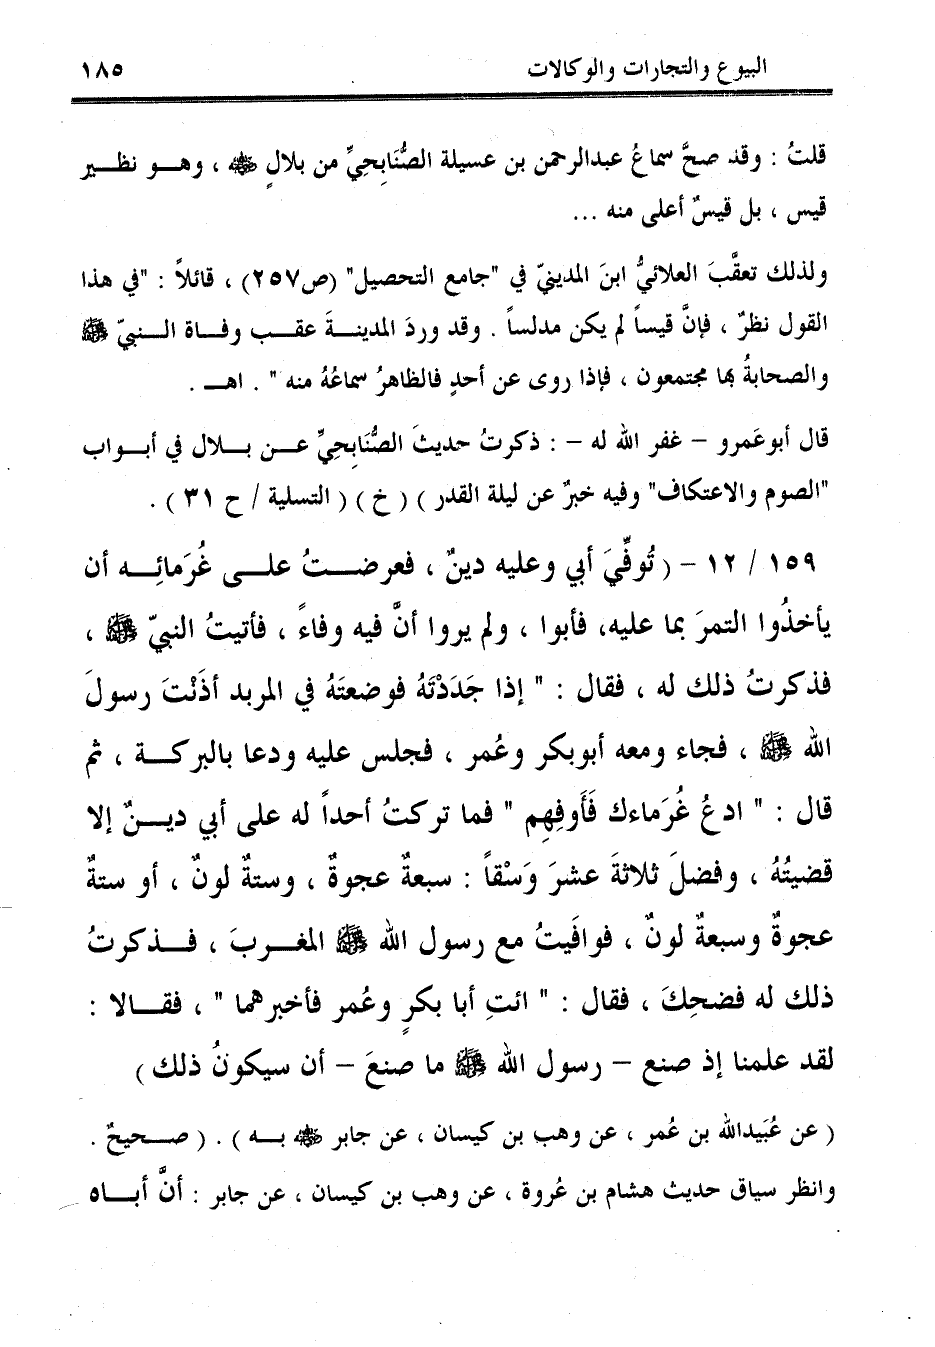 البيوع والتجارات والوكالات ١٨٥
قلتُ : وقد صحَّ سماعُ عبدالرحمن بن عسيلة الصُّنَابِحِيِّ من بلالٍ ﷺ ، وهــو نظــير
قيس ، بل قيسٌ أعلى منه ...
ولذلك تعقَّبَ العلائيُّ ابنَ المدينيّ في "جامع التحصيل" (ص٢٥٧) ، قائلاً : "في هذا
القول نظرٌ ، فإنَّ قيساً لم يكن مدلساً . وقد وردَ المدينــةَ عقــب وفــاة الــنبيّ ﷺ
والصحابةُ بها مجتمعون ، فإذا روى عن أحدٍ فالظاهرُ سماعُهُ منه " . اهــ .
قال أبوعَمرو – غفر الله له – : ذكرتُ حديثَ الصُّنَابِحِيِّ عــن بــلال في أبــواب
"الصوم والاعتكاف" وفيه خبرٌ عن ليلة القدر ) ( خ ) ( التسلية / ح ٣١ ) .
١٥٩ / ١٢ – ( تُوفِّيَ أبي وعليه دينٌ ، فعرضــتُ علــى غُرَمائِــه أن
يأخذُوا التمرَ بما عليه، فأبوا ، ولم يروا أنَّ فيه وفاءً ، فأتيتُ النبيّ ﷺ ،
فذكرتُ ذلك له ، فقال : " إذا جَدَدْتَهُ فوضعتَهُ في المربد أذَنْتَ رسولَ
الله ﷺ ، فجاء ومعه أبوبكر وعُمر ، فجلس عليه ودعا بالبركــة ، ثم
قال : " ادعُ غُرَماءك فَأَوفِهِم " فما تركتُ أحداً له على أبي ديــنٌ إلا
قضيتُهُ ، وفضلَ ثلاثةَ عشرَ وَسْقاً : سبعةٌ عجوةٌ ، وستةٌ لونٌ ، أو ستةٌ
عجوةٌ وسبعةٌ لونٌ ، فوافَيتُ مع رسول الله ﷺ المغــربَ ، فــذكرتُ
ذلك له فضحِكَ ، فقال : " ائتِ أبا بكرٍ وعُمر فأخبرهما " ، فقــالا :
لقد علمنا إذ صنع – رسول الله ﷺ ما صنعَ – أن سيكونُ ذلك )
( عن عُبَيدالله بن عُمر ، عن وهب بن كيسان ، عن جابر ﷺ بــه ) . ( صــحيحٌ .
وانظر سياق حديث هشام بن عُروة ، عن وهب بن كيسان ، عن جابر : أنَّ أبــاه